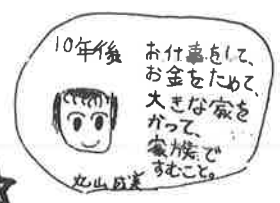 10年後
お仕事をして、
お金をためて、
大きな家を
かって、
家族で
すむこと。
丸山成実